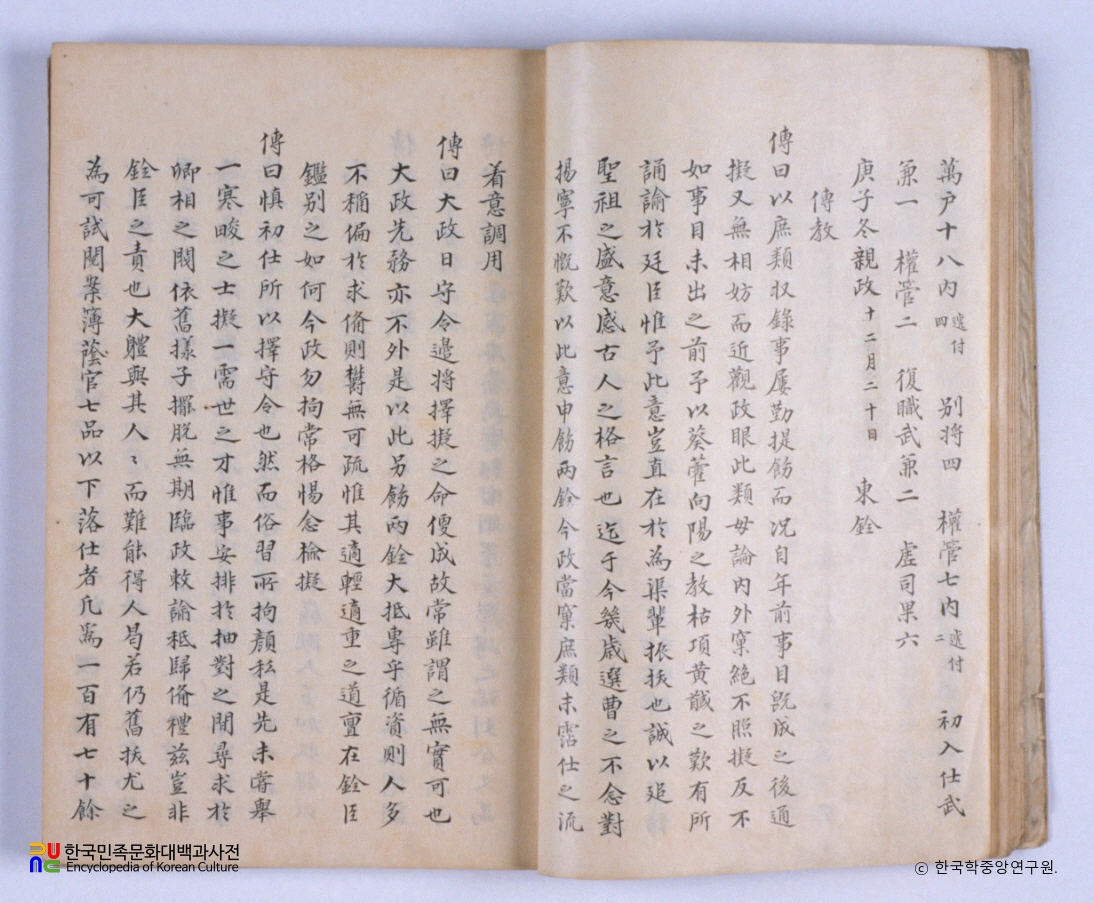 萬戶十八內四遞付 別將四 權管七內二遞付 初入仕武
兼一 權管二 復職武兼二 虛司果六
庚子冬親政十二月二十日 東銓
傳教
傳曰以庶類收錄事屢勤提飭而況自年前事目旣成之後通
擬又無相妨而近觀政眼此類毋論內外窠絶不照擬反不
如事目未出之前予以葵藿向陽之教枯項黃馘之歎有所
誦諭於廷臣惟予此意豈直在於為渠輩振扶也誠以追
聖祖之盛意感古人之格言也迄于今幾歲選曹之不念對
揚寧不慨歎以此意申飭兩銓今政當窠庶類未霑仕之流
着意調用
傳曰大政日守令邊將擇擬之命便成故常雖謂之無實可也
大政先務亦不外是以此另飭兩銓大抵專乎循資則人多
不稱偏於求備則鬱無可疏惟其適輕適重之道亶在銓臣
鑑別之如何今政勿拘常格惕念檢擬
傳曰慎初仕所以擇守令也然而俗習所拘顏私是先未嘗舉
一寒畯之士擬一需世之才惟事安排於抽對之間尋求於
卿相之閥依舊樣子擺脫無期臨政敕諭秪歸備禮玆豈非
銓臣之責也大軆與其人々而難能得人曷若仍舊扶尤之
為可試閱桒薄蔭官七品以下落仕者凡為一百有七十餘
한국민족문화대백과사전
Encyclopedia of Korean Culture
© 한국학중앙연구원.